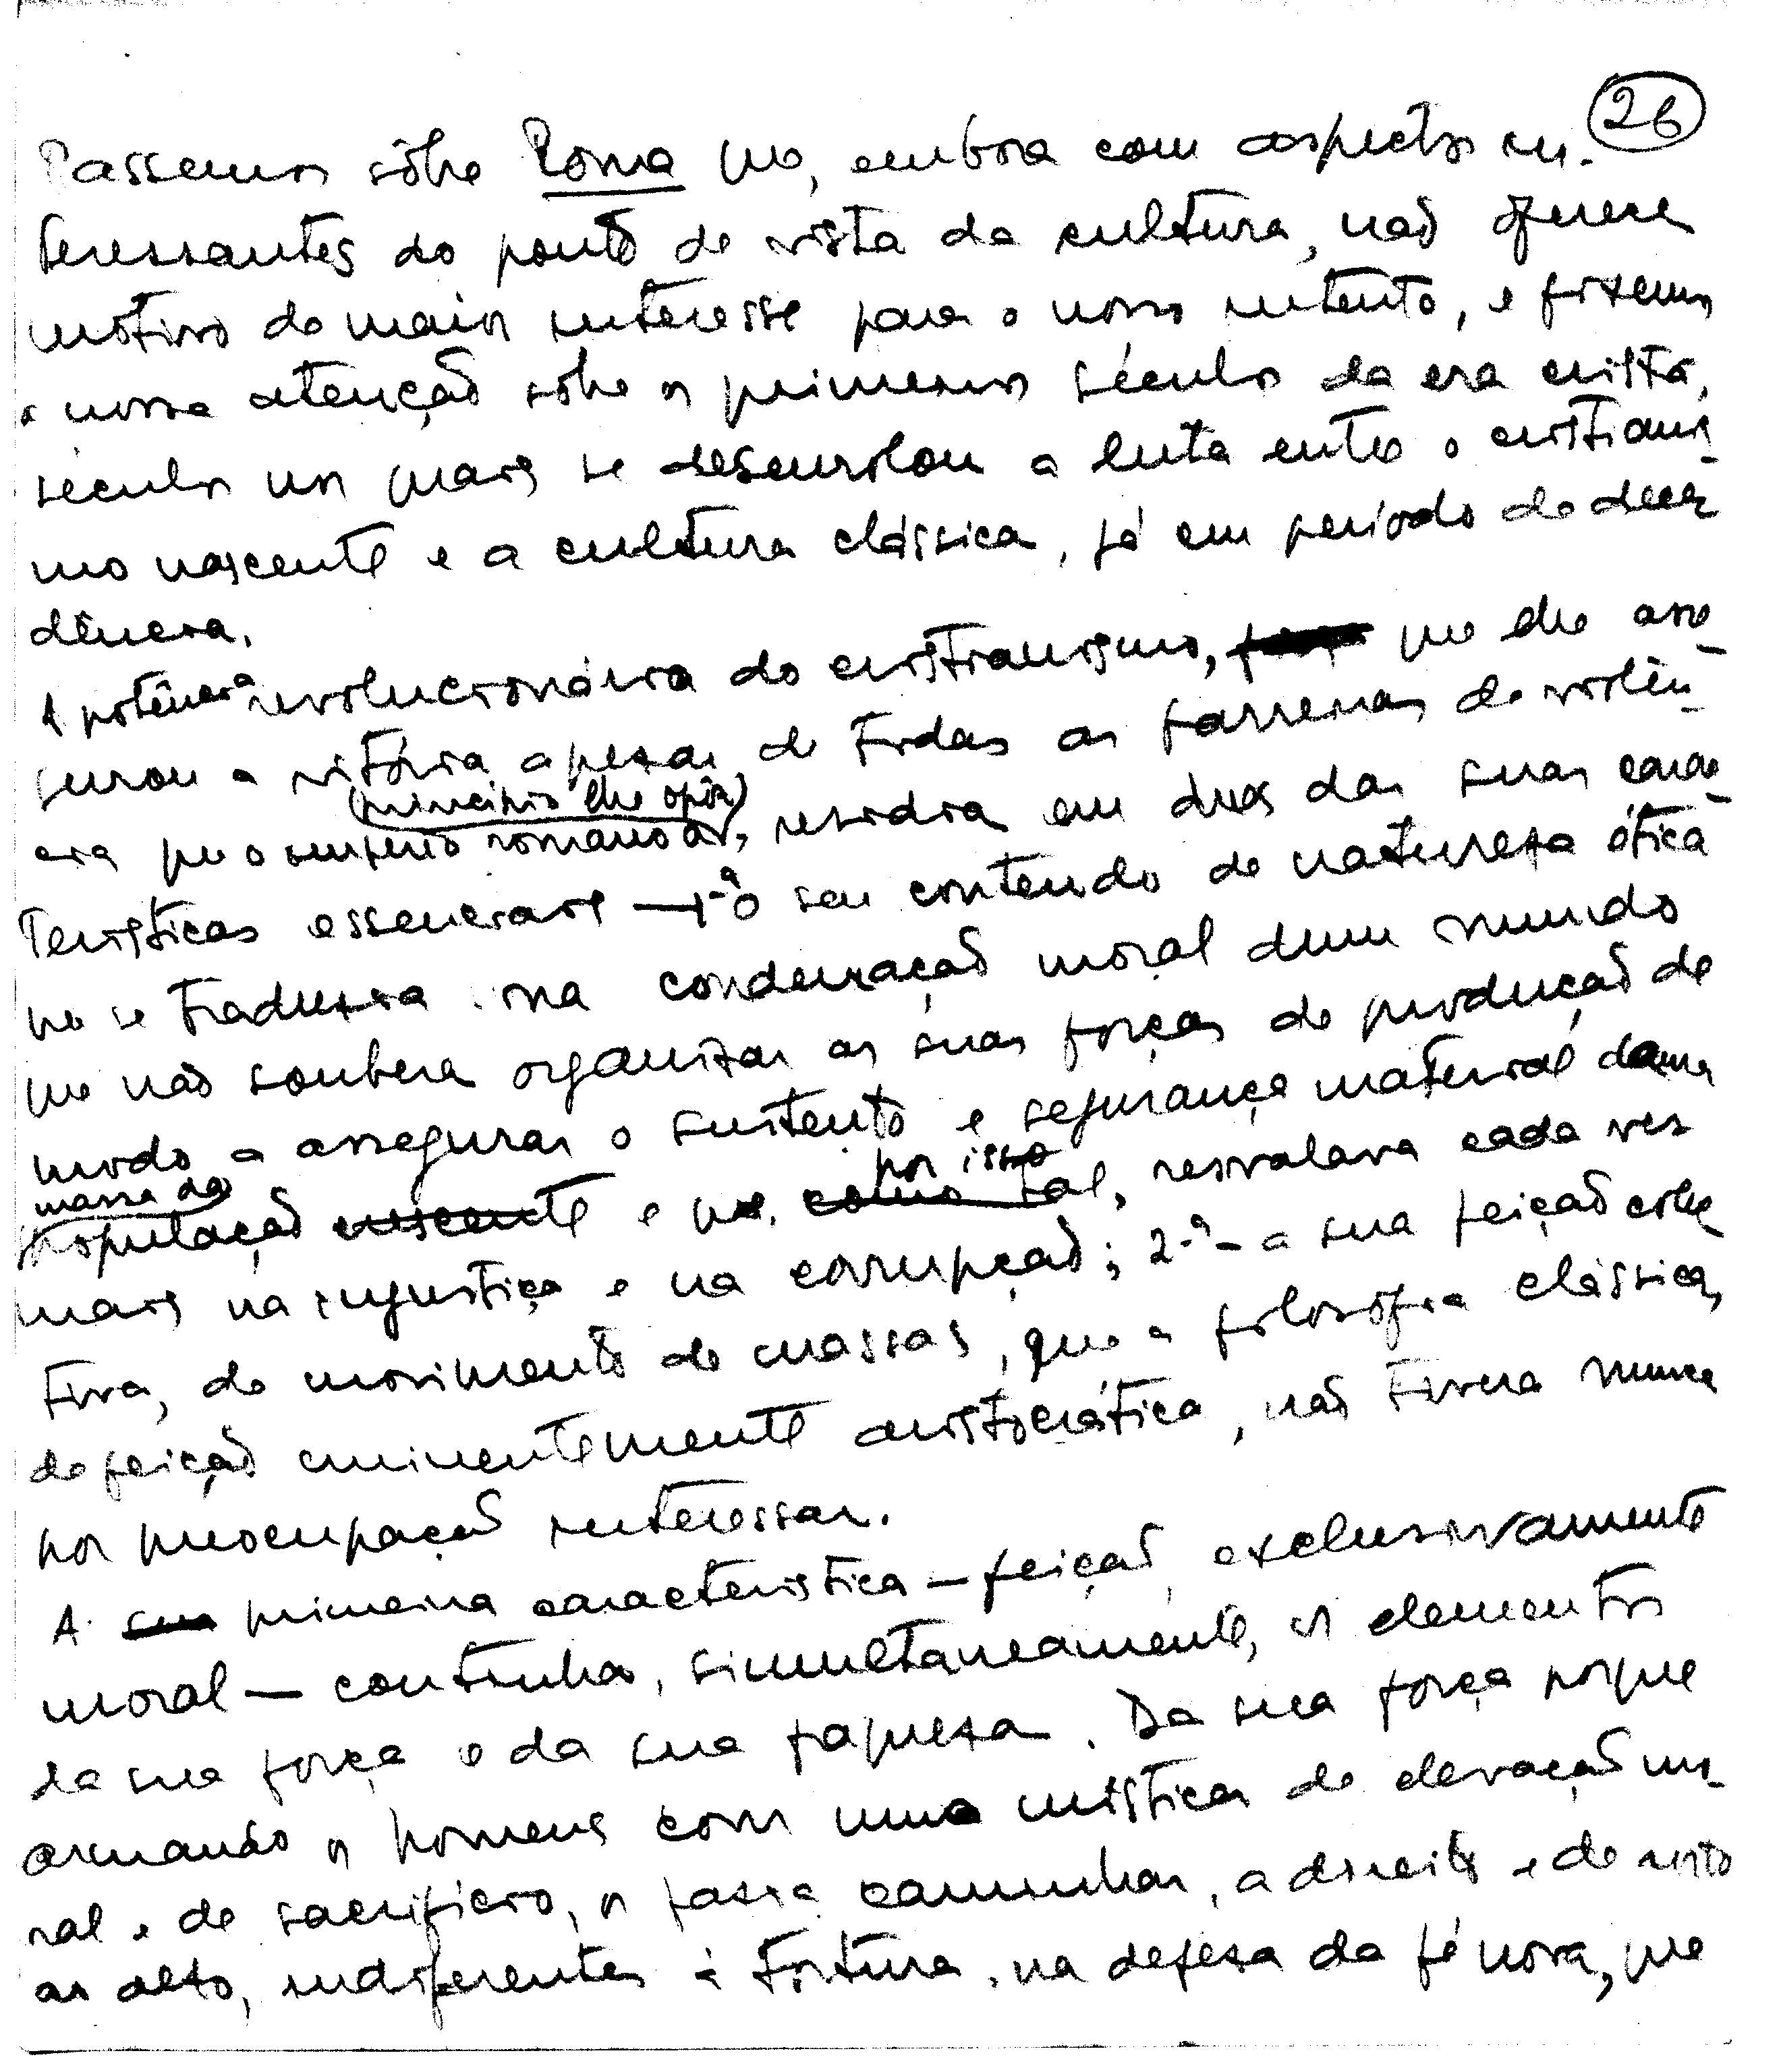 26
Passemos sôbre Roma que, embora com aspectos in-
teressantes do ponto de vista da cultura, não oferece
motivo de maior interesse para o nosso intento, e fixemos
a nossa atenção sôbre os primeiros séculos da era cristã,
séculos nos quais se desenrolou a luta entre o cristianis-
mo nascente e a cultura clássica, já em período de deca-
dência.
A potência revolucionária do cristianismo, que lhe asse-
gurou a vitória apezar de todas as barreiras de violên-
(princípio lhe opôs)
cia que o império romano, residia em duas das suas carac-
terísticas essenciais — 1.ª o seu conteudo de natureza ética
que se traduzia na condenação moral dum mundo
que não soubera organizar as suas forças de produção de
modo a assegurar o sustento e segurança material duma
massa da por isso
população crescente e que, como tal, resvalava cada vez
mais na injustiça e na corrupção; 2.ª - a sua feição colec-
tiva, de movimento de massas, que a filosofia clássica,
de feição eminentemente aristocrática, não tivera nunca
por preocupação interessar.
A sua primeira característica — feição exclusivamente
moral — continha, simultaneamente, os elementos
da sua força e da sua fraqueza. Da sua força porque
armando os homens com uma mística de elevação mo-
ral e de sacrifício, os fazia caminhar, a direito e de rosto
ao alto, indiferentes à tortura, na defeza da fé nova, que